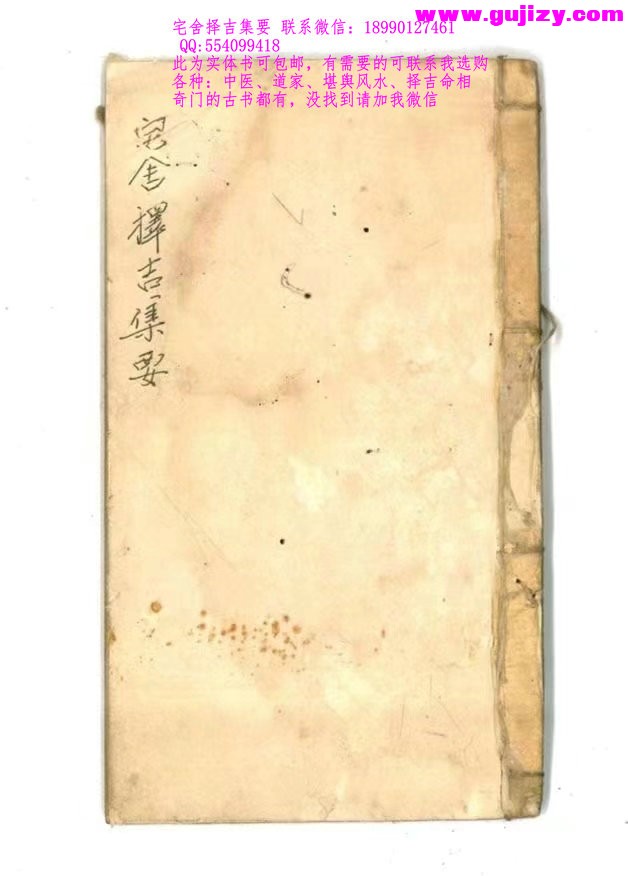 www.gujizy.com
宅舍择吉集要 联系微信：18990127461
QQ:554099418
此为实体书可包邮，有需要的可联系我选购
各种：中医、道家、堪舆风水、择吉命相
奇门的古书都有，没找到请加我微信
宅舍擇吉集要